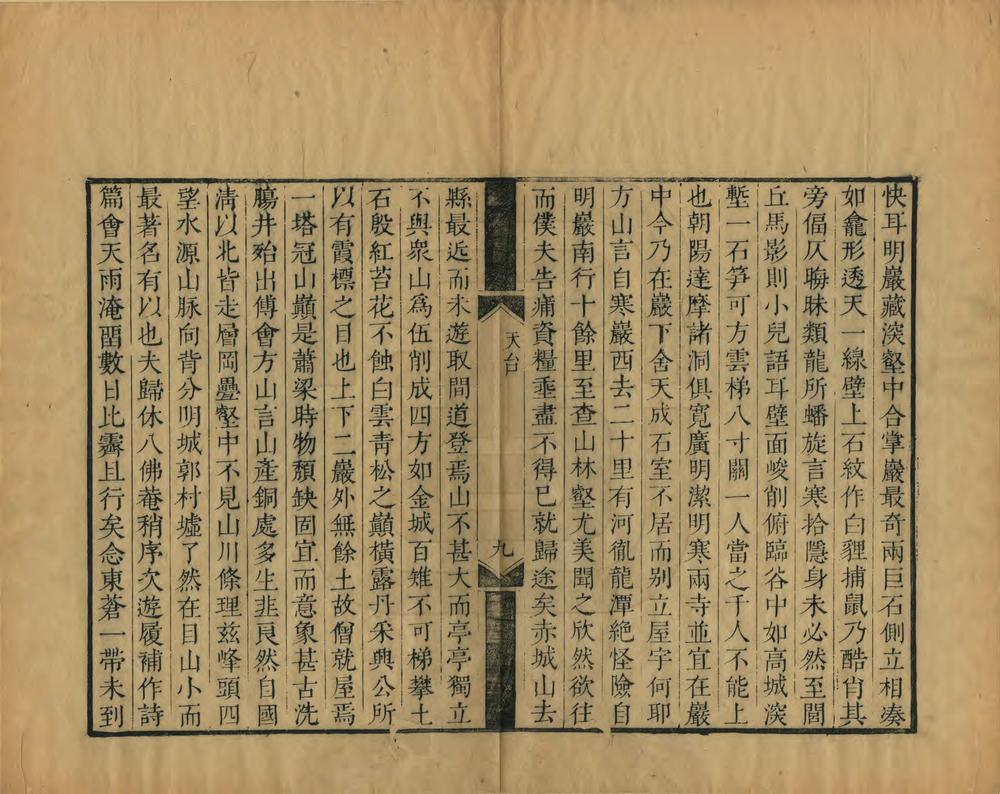 快耳明巖藏深壑中合掌巖最奇兩巨石側立相湊
如龕形透天一線壁上石紋作白貍捕鼠乃酷肖其
旁偪仄晦昧類龍所蟠旋言寒拾隱身未必然至閭
丘馬影則小兒語耳壁面峻削俯臨谷中如高城深
塹一石笋可方雲梯八寸關一人當之千人不能上
也朝陽達摩諸洞俱寬廣明潔明寒兩寺並宜在巖
中今乃在巖下舍天成石室不居而别立屋宇何耶
方山言自寒巖西去二十里有河𧈅龍潭絶怪險自
明巖南行十餘里至查山林壑尤美聞之欣然欲往
而僕夫告痡資糧垂盡不得已就歸途矣赤城山去
天台
九
縣最近而未遊取間道登焉山不甚大而亭亭獨立
不與衆山爲伍削成四方如金城百雉不可梯攀土
石殷紅苔花不蝕白雲青松之巔橫露丹采興公所
以有霞標之目也上下二巖外無餘土故僧就屋焉
一塔冠山巔是蕭梁時物頽缺固宜而意象甚古洗
腸井殆出傅會方山言山產銅處多生韭良然自國
清以北皆走層岡疊壑中不見山川條理兹峰頭四
望水源山脉向背分明城郭村墟了然在目山小而
最著名有以也夫歸休八佛菴稍序次遊履補作詩
篇會天雨淹畱數日比霽且行矣念東蒼一帶未到